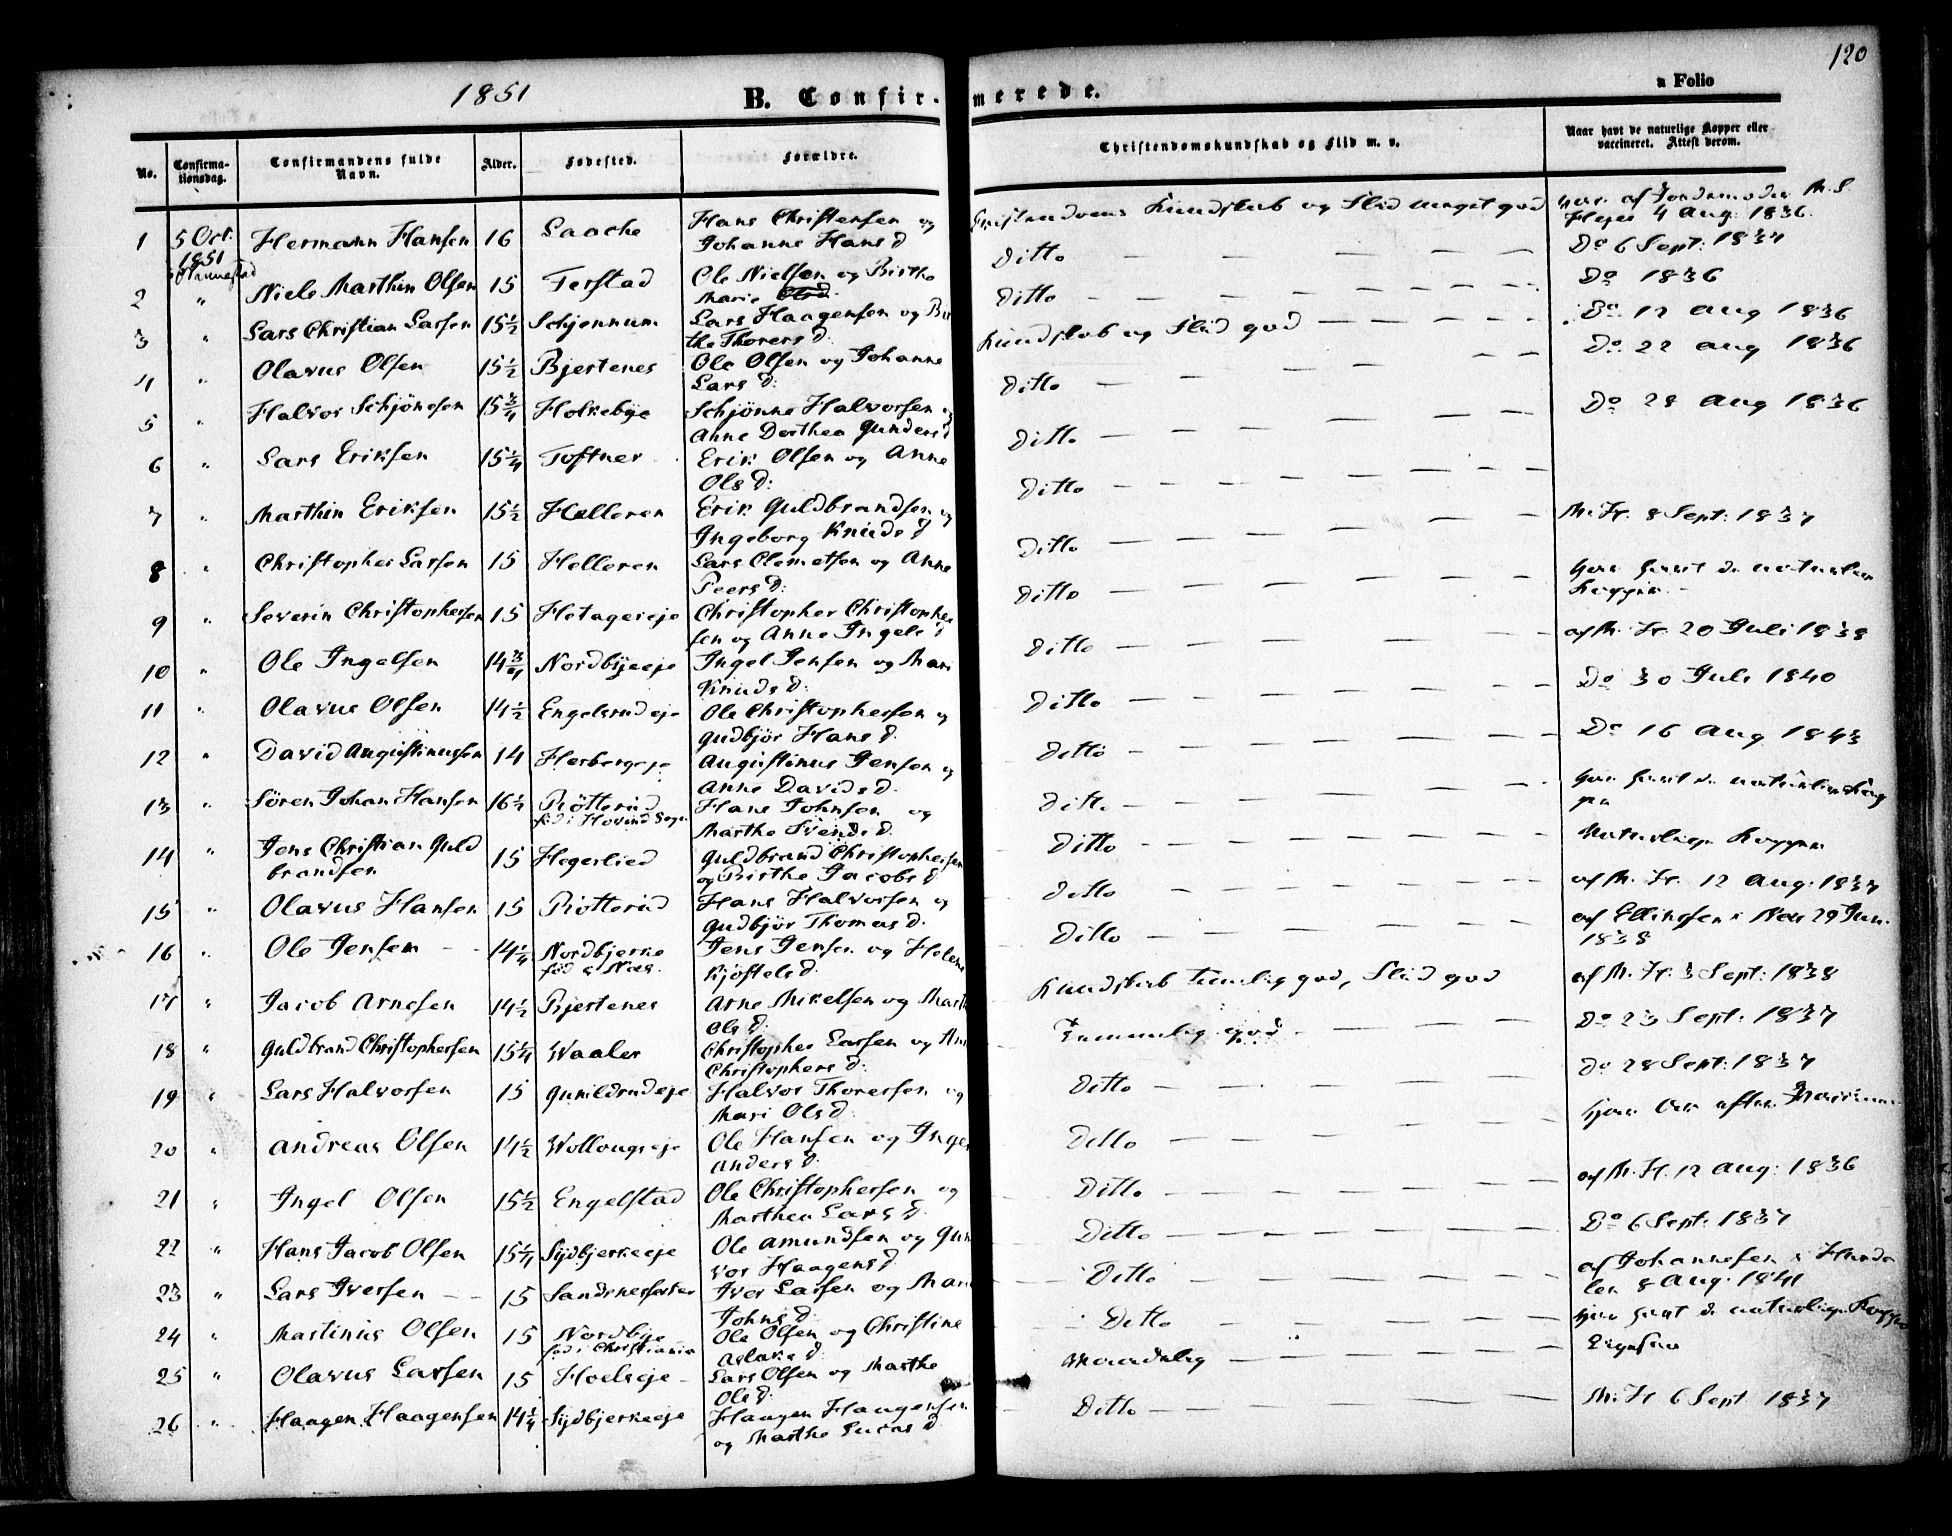 120
1851 B. Confirmerede. a Folio
No. Confirmationsdag. Confirmandens fulde Navn. Alder. Fødested. Forældre. Christendomskundskab og Flid m. v. Naar havt de naturlige Kopper eller vaccineret. Attest derom.
1 5 Oct: 1851 Hermann Hansen 16 Saache Hans Christensen og Johanne Hansd Kundskab og Flid meget god vac. af Jordemoder M. S. 4 Aug: 1836.
2 " Niels Marthin Olsen 15 Ferstad Ole Nielsen og Birthe Marie Ditto Do 6 Sept: 1837
3 " Lars Christian Larsen 15½ Schjennum Lars Haagensen og Birthe Thorersd: Ditto Do 1836
4 " Olavus Olsen 15½ Bjertenes Ole Olsen og Johanne Larsd: Kundskab og Flid god Do 12 Aug 1836
5 " Halvor Schjønesen 15¾ Holkebye Schjønne Halvorsen og Anne Dorthea Gundersd Ditto Do 22 Aug 1836
6 " Lars Eriksen 15¼ Toftner Erik Olsen og Anne Olsd: Ditto Do 28 Aug 1836
7 " Marthin Eriksen 15½ Helleren Erik Guldbrandsen og Ingeborg Knudsd Ditto
8 " Christopher Larsen 15 Helleren Lars Clemetsen og Anne Peersd: Ditto M. Fr. 8 Sept: 1837
9 " Severin Christophersen 15 Hetageeje Christopher Christophersen og Anne Ingelsd Ditto har havt de naturlige Kopper
10 " Ole Ingelsen 14¾ Nordbyeeje Ingel Jensen og Mari Knudsd: Ditto af M. Fr. 20 Juli 1838
11 " Olavus Olsen 14½ Engelsrudeje Ole Christophersen og Gudbjør Hansd. Ditto Do 30 Juli 1840
12 " David Augustinussen 14 Herbergeeje Augustinus Jensen og Anne Davidsd. Ditto Do 16 Aug 1843
13 " Søren Johan Hansen 16½ Røtterud fød i Hovind Sogn Hans Johnsen og Marthe Svendsd. Ditto har havt de naturlige Kopper
14 " Jens Christian Guldbrandsen 15 Hegerlied Guldbrand Christophersen og Birthe Jacobsd Ditto Naturlige Kopper
15 " Olavus Hansen 15 Røtterud Hans Halvorsen og Gudbjør Thomasd. Ditto af M. Fr. 12 Aug: 1837
16 " Ole Jensen 14¼ Nordbjerke fød i Næs. Jens Jensen og Helene Kjøstelsd. Ditto af Ellingsen i Næs 29 Jun. 1838
17 " Jacob Arnesen 14½ Bjertenes Arne Mikelsen og Marthe Olsd: Kundskab temmelig god, Flid god af M. Fr. 3 Sept: 1838
18 " Guldbrand Christophersen 15¼ Waaler Christopher Larsen og Anne Christophersd: Temmelig god Do 23 Sept: 1837
19 " Lars Halvorsen 15 Gunildrudeje Halvor Thoresen og Mari Olsd: Ditto Do 28 Sept: 1837
20 " Andreas Olsen 14½ Wollougseje Ole Hansen og Inger Andersd: Ditto
21 " Ingel Olsen 15½ Engelstad Ole Christophersen og Marthea Larsd. Ditto af M. Fr. 12 Aug: 1836
22 " Hans Jacob Olsen 15¼ Sydbjerkeeje Ole Amundsen og Gunvor Haagensd Ditto Do 6 Sept: 1837
23 " Lars Iversen 15 Iver Larsen og Mari Johnsd: Ditto af Johannesen i Hurdalen 8 Aug: 1841
24 " Martinius Olsen 15 Nordbye fød i Christiania Ole Olsen og Christine Aslaksd: Ditto har havt de naturlige Kopper
25 " Olavus Larsen 15 Hoelseje Lars Olsen og Marthe Olsd: Maadelig
26 " Haagen Haagensen 14¼ Sydbjerkeeje Haagen Haagensen og Marthe Lucasd Ditto M. Fr 6 Sept 1837